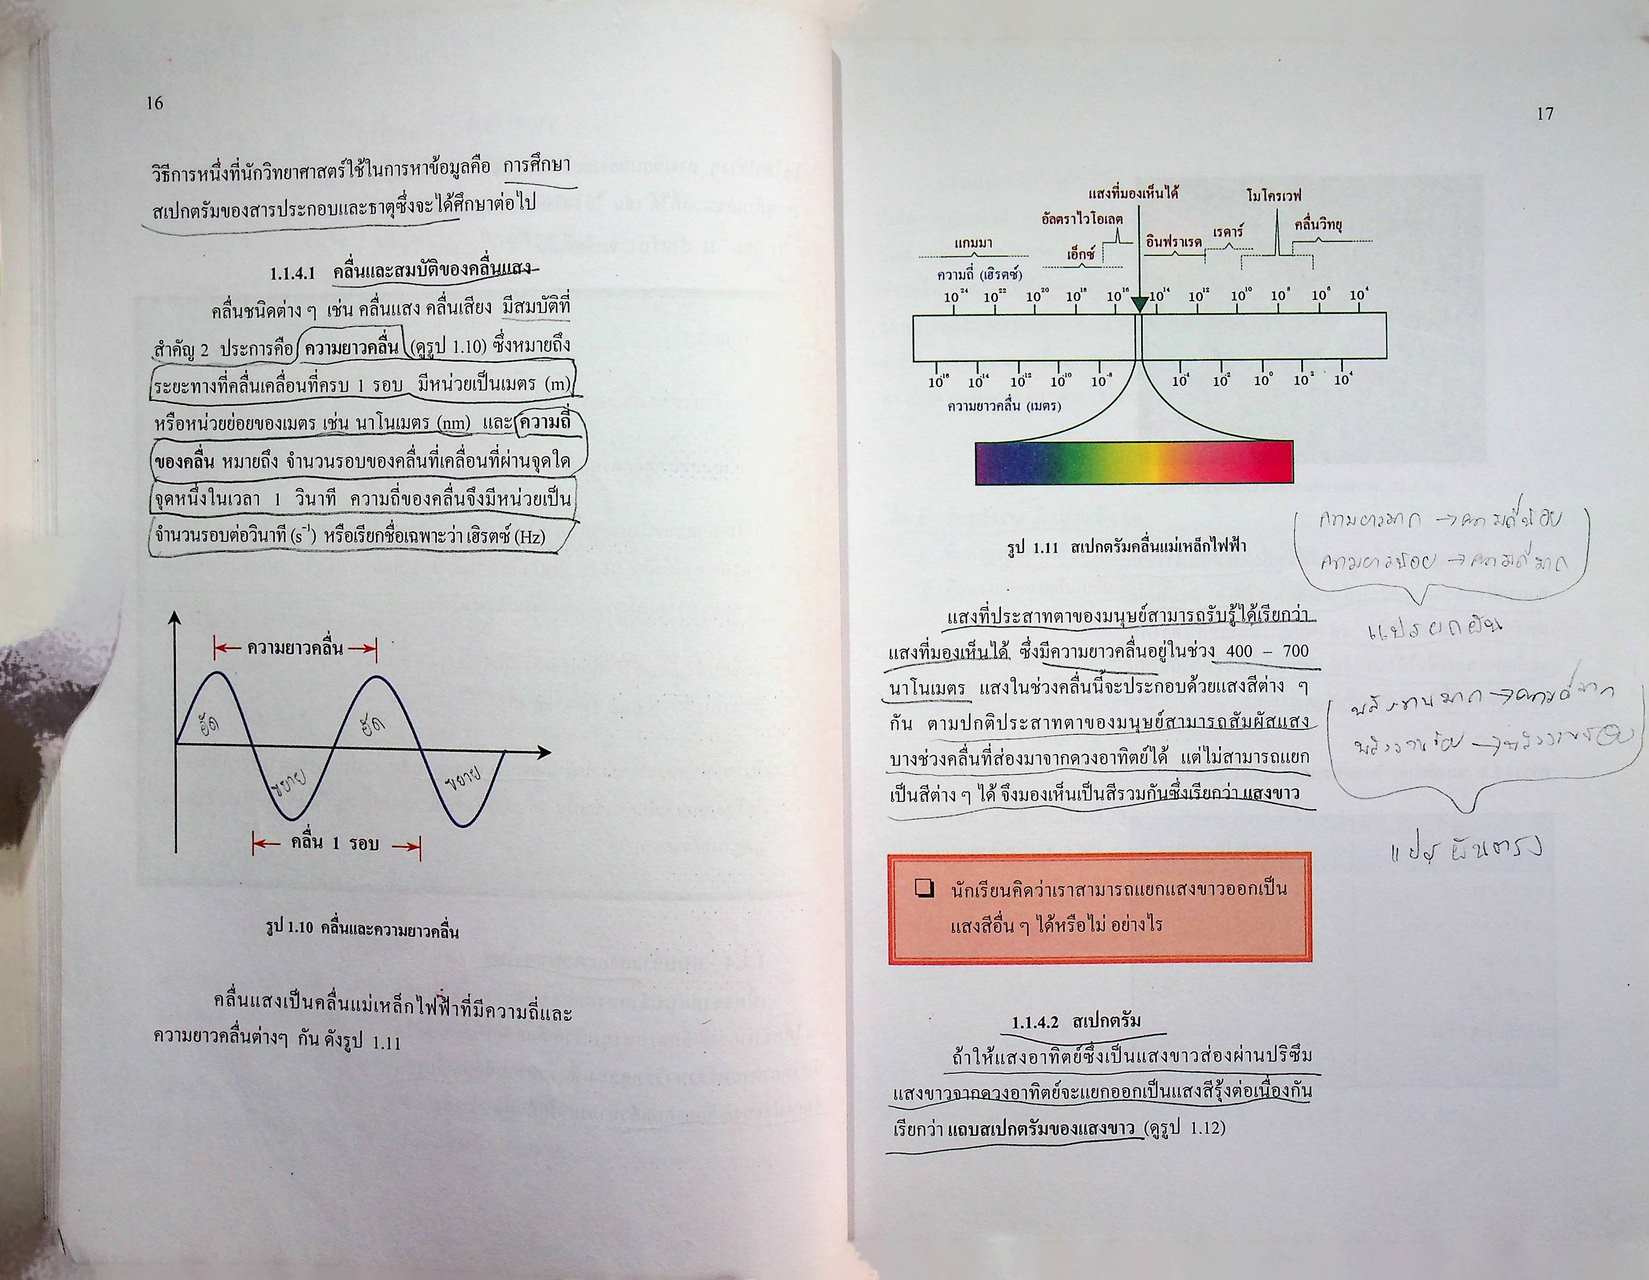 16
วิธีการหนึ่งที่นักวิทยาศาสตร์ใช้ในการหาข้อมูลคือ การศึกษา
สเปกตรัมของสารประกอบและธาตุซึ่งจะได้ศึกษาต่อไป
1.1.4.1 คลื่นและสมบัติของคลื่นแสง
คลื่นชนิดต่าง ๆ เช่น คลื่นแสง คลื่นเสียง มีสมบัติที่
สำคัญ 2 ประการคือ ความยาวคลื่น (ดูรูป 1.10) ซึ่งหมายถึง
ระยะทางที่คลื่นเคลื่อนที่ครบ 1 รอบ มีหน่วยเป็นเมตร (m)
หรือหน่วยย่อยของเมตร เช่น นาโนเมตร (nm) และ ความถี่
ของคลื่น หมายถึง จำนวนรอบของคลื่นที่เคลื่อนที่ผ่านจุดใด
จุดหนึ่งในเวลา 1 วินาที ความถี่ของคลื่นจึงมีหน่วยเป็น
จำนวนรอบต่อวินาที (s⁻¹) หรือเรียกชื่อเฉพาะว่า เฮิรตซ์ (Hz)
ความยาวคลื่น
อัด อัด
ขยาย ขยาย
คลื่น 1 รอบ
รูป 1.10 คลื่นและความยาวคลื่น
คลื่นแสงเป็นคลื่นแม่เหล็กไฟฟ้าที่มีความถี่และ
ความยาวคลื่นต่างๆ กัน ดังรูป 1.11
17
แสงที่มองเห็นได้ ไมโครเวฟ
อัลตราไวโอเลต คลื่นวิทยุ
แกมมา เอ็กซ์ อินฟราเรด เรดาร์
ความถี่ (เฮิรตซ์)
10²⁴ 10²² 10²⁰ 10¹⁸ 10¹⁶ 10¹⁴ 10¹² 10¹⁰ 10⁸ 10⁶ 10⁴
10⁻¹⁶ 10⁻¹⁴ 10⁻¹² 10⁻¹⁰ 10⁻⁸ 10⁻⁴ 10⁻² 10⁰ 10² 10⁴
ความยาวคลื่น (เมตร)
รูป 1.11 สเปกตรัมคลื่นแม่เหล็กไฟฟ้า
ความยาวมาก → ความถี่น้อย
ความยาวน้อย → ความถี่มาก
แปรผกผัน
แสงที่ประสาทตาของมนุษย์สามารถรับรู้ได้เรียกว่า
แสงที่มองเห็นได้ ซึ่งมีความยาวคลื่นอยู่ในช่วง 400 – 700
นาโนเมตร แสงในช่วงคลื่นนี้จะประกอบด้วยแสงสีต่าง ๆ
กัน ตามปกติประสาทตาของมนุษย์สามารถสัมผัสแสง
บางช่วงคลื่นที่ส่องมาจากดวงอาทิตย์ได้ แต่ไม่สามารถแยก
เป็นสีต่าง ๆ ได้ จึงมองเห็นเป็นสีรวมกันซึ่งเรียกว่า แสงขาว
พลังงานมาก → ความถี่มาก
พลังงานน้อย →
แปรผันตรง
❑ นักเรียนคิดว่าเราสามารถแยกแสงขาวออกเป็น
แสงสีอื่น ๆ ได้หรือไม่ อย่างไร
1.1.4.2 สเปกตรัม
ถ้าให้แสงอาทิตย์ซึ่งเป็นแสงขาวส่องผ่านปริซึม
แสงขาวจากดวงอาทิตย์จะแยกออกเป็นแสงสีรุ้งต่อเนื่องกัน
เรียกว่า แถบสเปกตรัมของแสงขาว (ดูรูป 1.12)